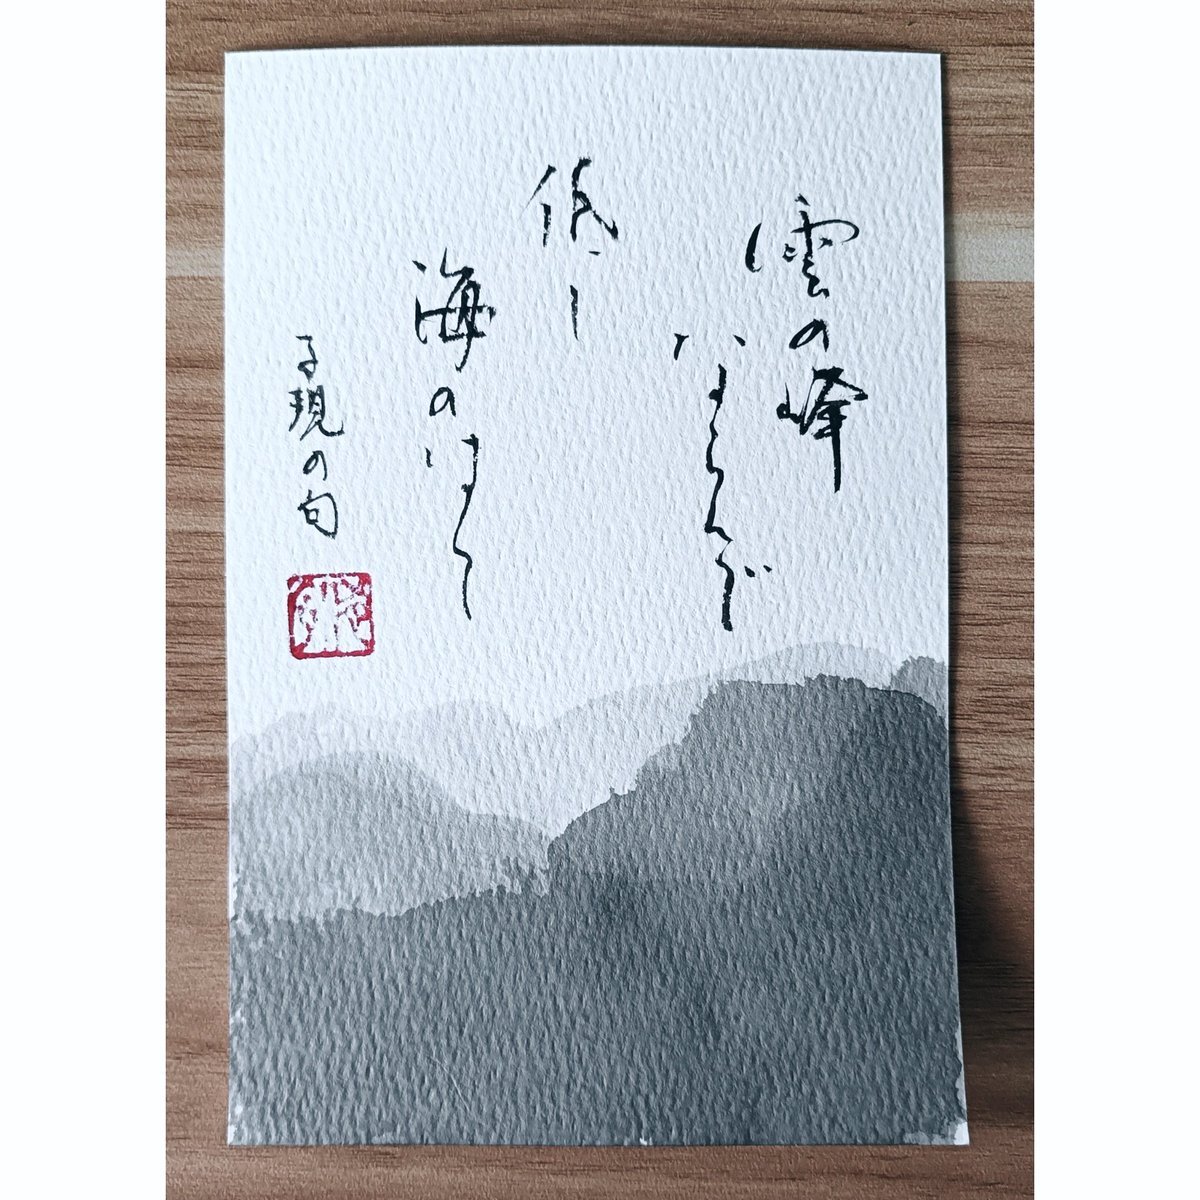 雲の峰
ならんで
低し
海のはて
子規の句